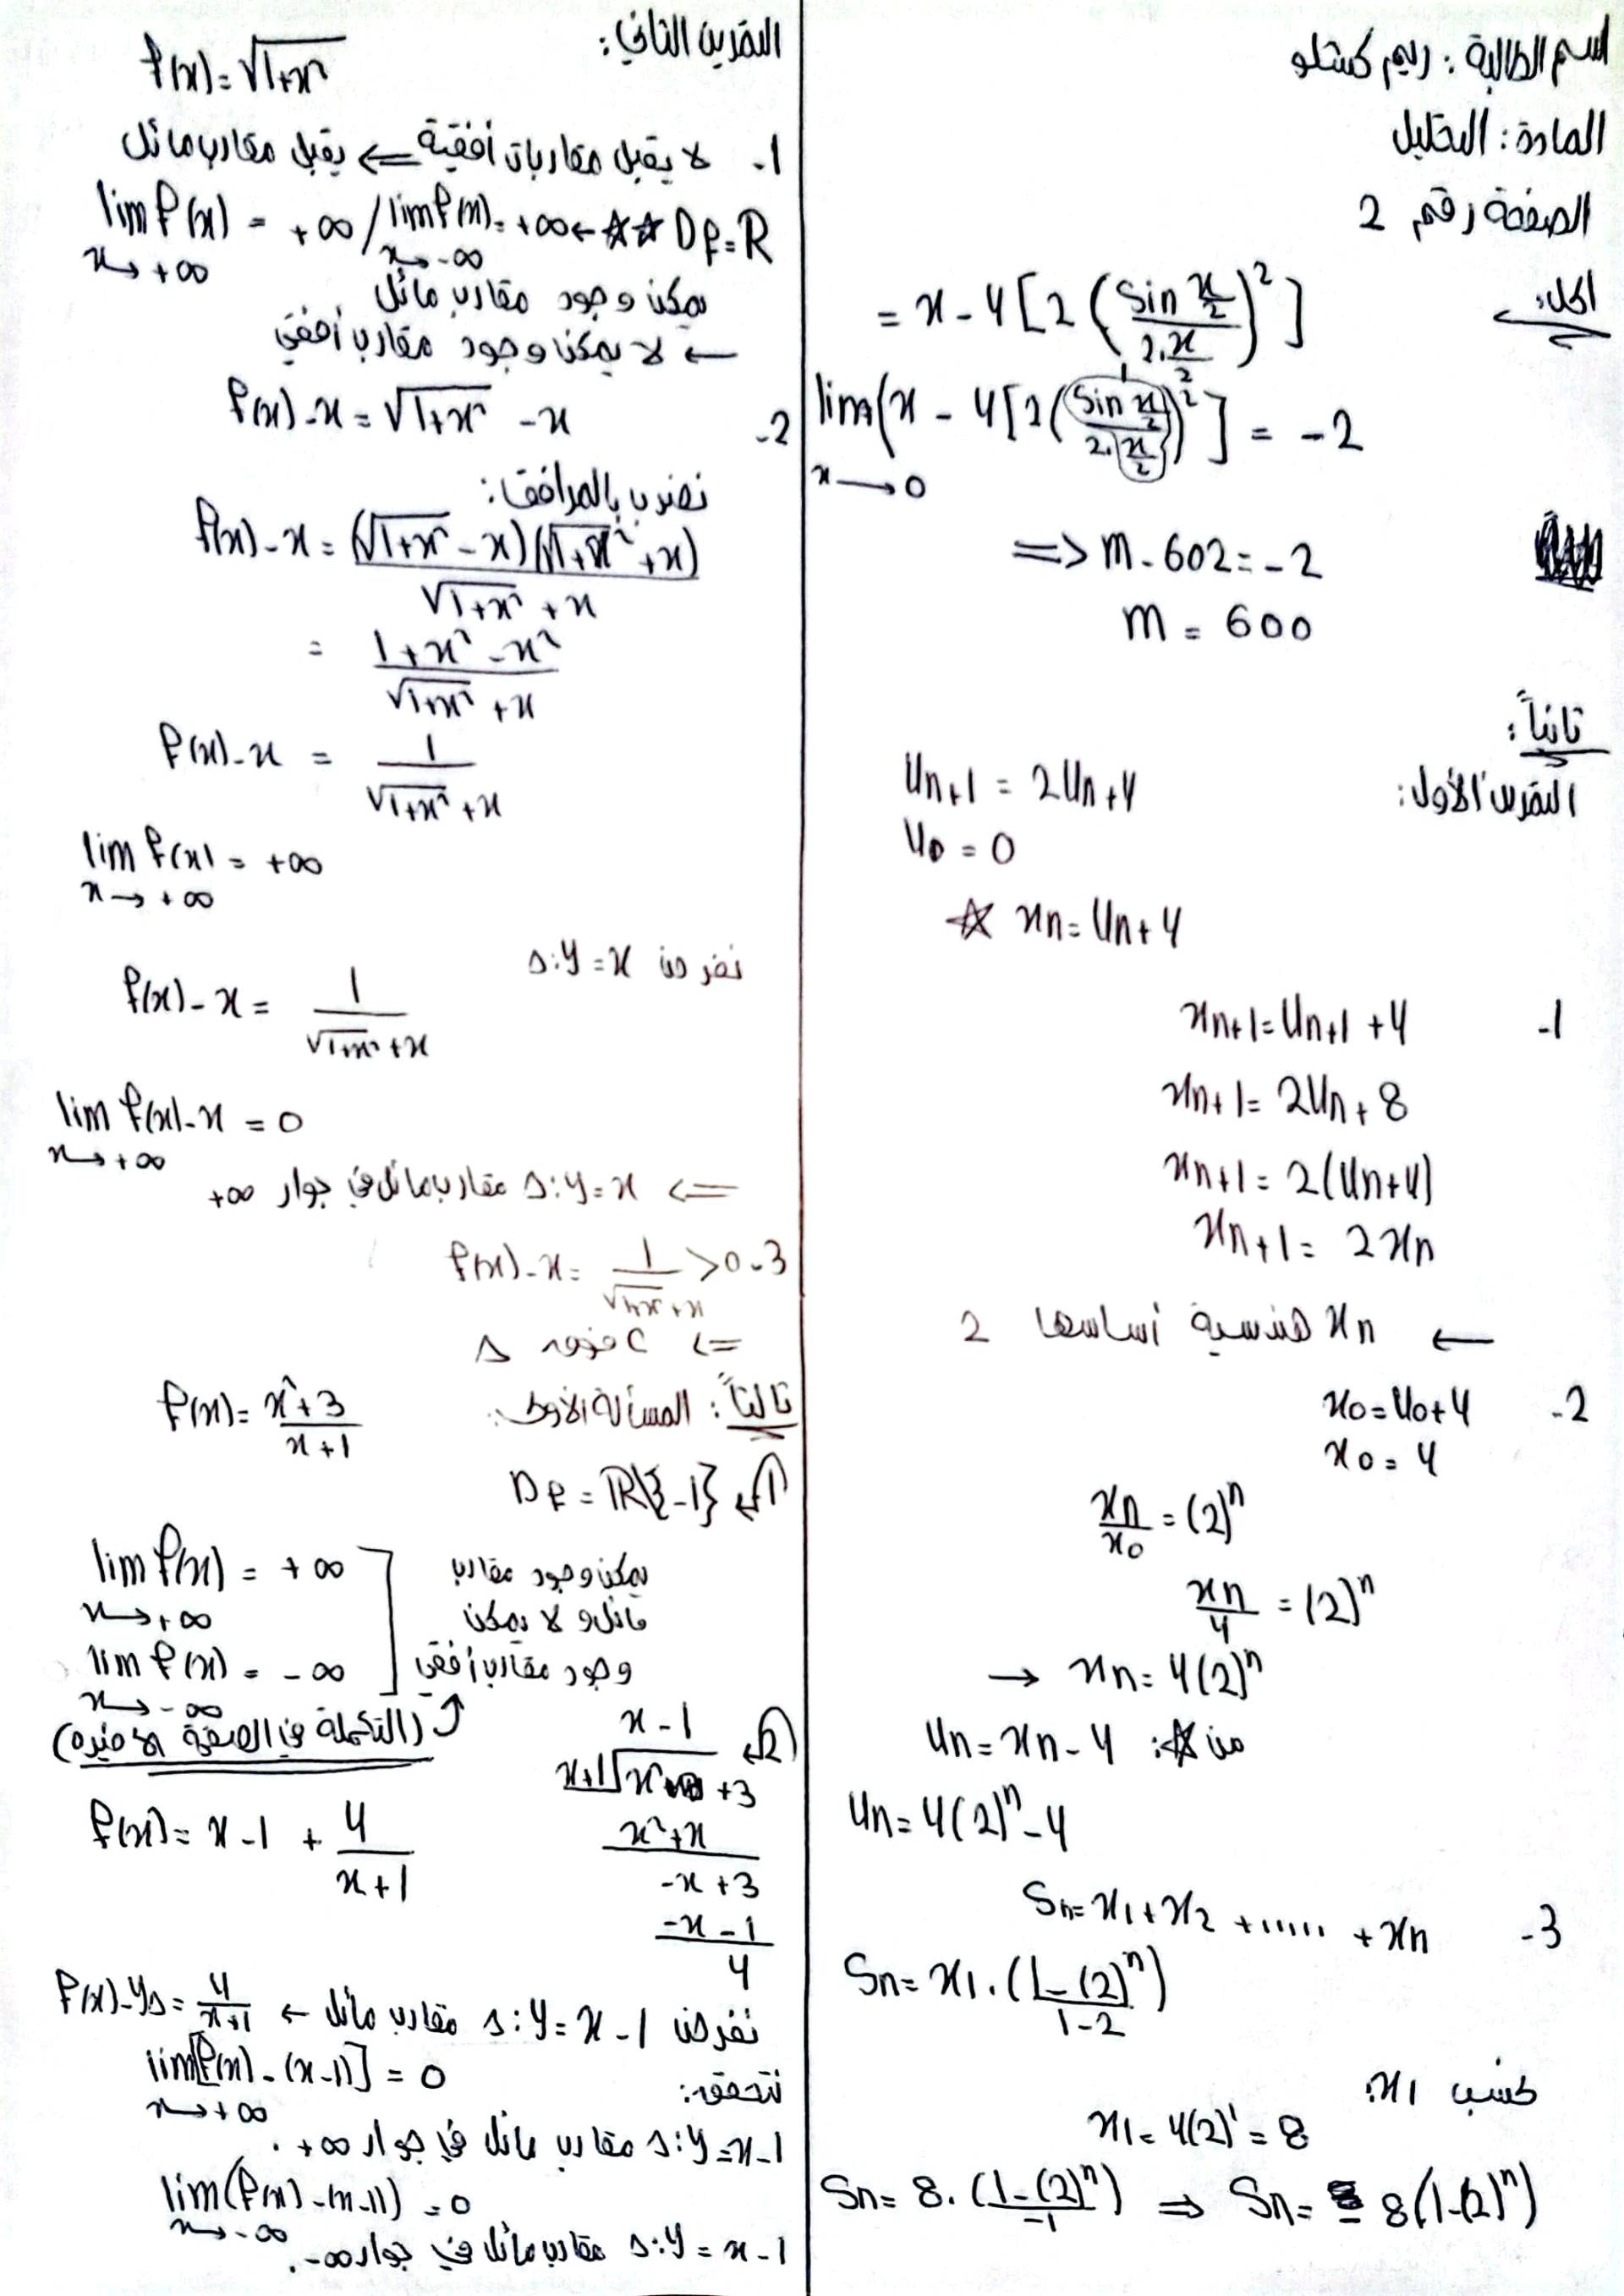 اسم الطالبة : ريم كشتلو
المادة : التحليل
الصفحة رقم 2
الحل:
= x - 4 [ 2 ( sin x/2 / 2.x/2 )² ]
lim x→0 ( x - 4 [ 2 ( sin x/2 / 2.x/2 )² ] = -2
=> m - 602 = -2
m = 600
ثانياً :
التمرين الأول :
Un+1 = 2Un + 4
U0 = 0
☆ xn = Un + 4
1- xn+1 = Un+1 + 4
xn+1 = 2Un + 8
xn+1 = 2(Un+4)
xn+1 = 2xn
← xn هندسية أساسها 2
2- x0 = U0 + 4
x0 = 4
xn/x0 = (2)ⁿ
xn/4 = (2)ⁿ
→ xn = 4(2)ⁿ
من ☆: Un = xn - 4
Un = 4(2)ⁿ - 4
3- Sn = x1 + x2 + ...... + xn
Sn = x1 . ( 1 - (2)ⁿ / 1 - 2 )
نحسب x1:
x1 = 4(2)¹ = 8
Sn = 8 . ( 1 - (2)ⁿ / -1 ) ⇒ Sn = - 8(1-(2)ⁿ)
التمرين الثاني :
f(x) = √1+x²
1- لا يقبل مقاربات أفقية <= يقبل مقارب مائل
lim x→+∞ f(x) = +∞ / lim x→-∞ f(x) = +∞ ← ☆☆ Df = R
يمكن وجود مقارب مائل
← لا يمكن وجود مقارب أفقي
2- f(x) - x = √1+x² - x
نضرب بالمرافق :
f(x) - x = (√1+x² - x)(√1+x² + x) / √1+x² + x
= 1 + x² - x² / √1+x² + x
f(x) - x = 1 / √1+x² + x
lim x→+∞ f(x) = +∞
نفرض Δ: y = x
f(x) - x = 1 / √1+x² + x
lim x→+∞ f(x) - x = 0
=> Δ: y = x مقارب مائل في جوار +∞
3- f(x) - x = 1 / √1+x² + x > 0
=> C فوق Δ
ثالثاً : المسألة الأولى :
f(x) = x²+3 / x+1
1 Df = R\{-1}
lim x→+∞ f(x) = +∞
lim x→-∞ f(x) = -∞
يمكن وجود مقارب
مائل و لا يمكن
وجود مقارب أفقي
(التكملة في الصفحة الأخيرة)
2 x - 1
x+1 x² + 3
x² + x
-x + 3
-x - 1
4
f(x) = x - 1 + 4 / x+1
نفرض Δ: y = x - 1 مقارب مائل ← f(x) - yΔ = 4 / x+1
نتحقق:
lim x→+∞ [f(x) - (x-1)] = 0
Δ: y = x-1 مقارب مائل في جوار +∞ .
lim x→-∞ (f(x) - (x-1)) = 0
Δ: y = x - 1 مقارب مائل في جوار -∞ .